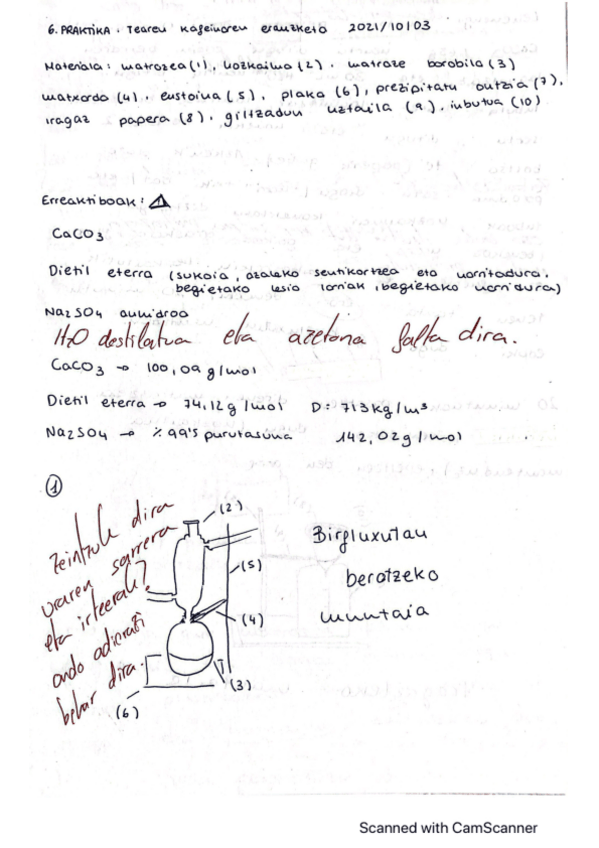 6. PRAKTIKA. Tearen kafeinaren erauzketa 2021/10/03
Materiala: matrazea (1), hozkailua (2), matraze borobila (3)
matxarda (4), euskoina (5), plaka (6), prezipitatu ontzia (7),
iragaz papera (8), giltzadun uztaila (9), inbutua (10)
Erreaktiboak: ⚠
CaCO3
Dietil eterra (sukoia, azaleko sentikortzea eta narritadura,
begietako lesio larriak, begietako narridura)
Na2SO4 anhidroa
H2O destilatua eta azetona falta dira.
CaCO3 → 100,09 g/mol
Dietil eterra → 74,12 g/mol D: 713 kg/m³
Na2SO4 → %99'5 purutasuna 142,02 g/mol
1
Zeintzuk dira
uraren sarrera
eta irteerak?
ondo adierazi
behar dira.
(2)
(5)
(4)
(3)
(6)
Birfluxutan
berotzeko
muntaia
Scanned with CamScanner